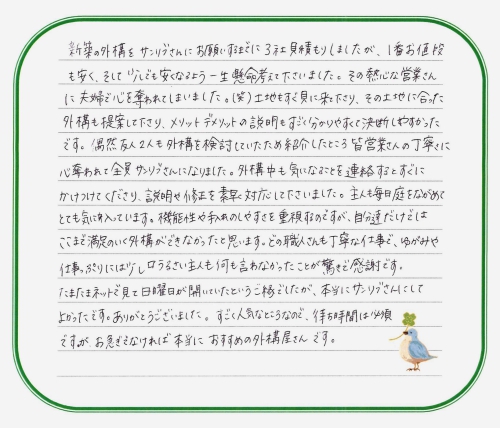 新築の外構をサンリブさんにお願いするまでに3社見積もりしましたが、1番お値段
も安く、そして少しでも安くなるよう一生懸命考えて下さいました。その熱心な営業さん
に夫婦で心を奪われてしまいました。(笑)土地もすぐ見に来て下さり、その土地に合った
外構も提案して下さり、メリットデメリットの説明もすごく分かりやすくて決断しやすかった
です。偶然友人2人も外構を検討していたため紹介したところ皆営業さんの丁寧さに
心奪われて全員サンリブさんになりました。外構中も気になることを連絡するとすぐに
かけつけてくださり、説明や修正を素早く対応して下さいました。主人も毎日庭をながめて
とても気に入っています。機能性や手入れのしやすさを重視するのですが、自分達だけでは
ここまで満足のいく外構ができなかったと思います。どの職人さんも丁寧な仕事で、ゆがみや
仕事っぷりには少し口うるさい主人も何も言わなかったことが驚きで感謝です。
たまたまネットで見て日曜日が開いていたというご縁でしたが、本当にサンリブさんにして
よかったです。ありがとうございました。すごく人気なところなので、待ち時間は必須
ですが、お急ぎでなければ本当におすすめの外構屋さんです。